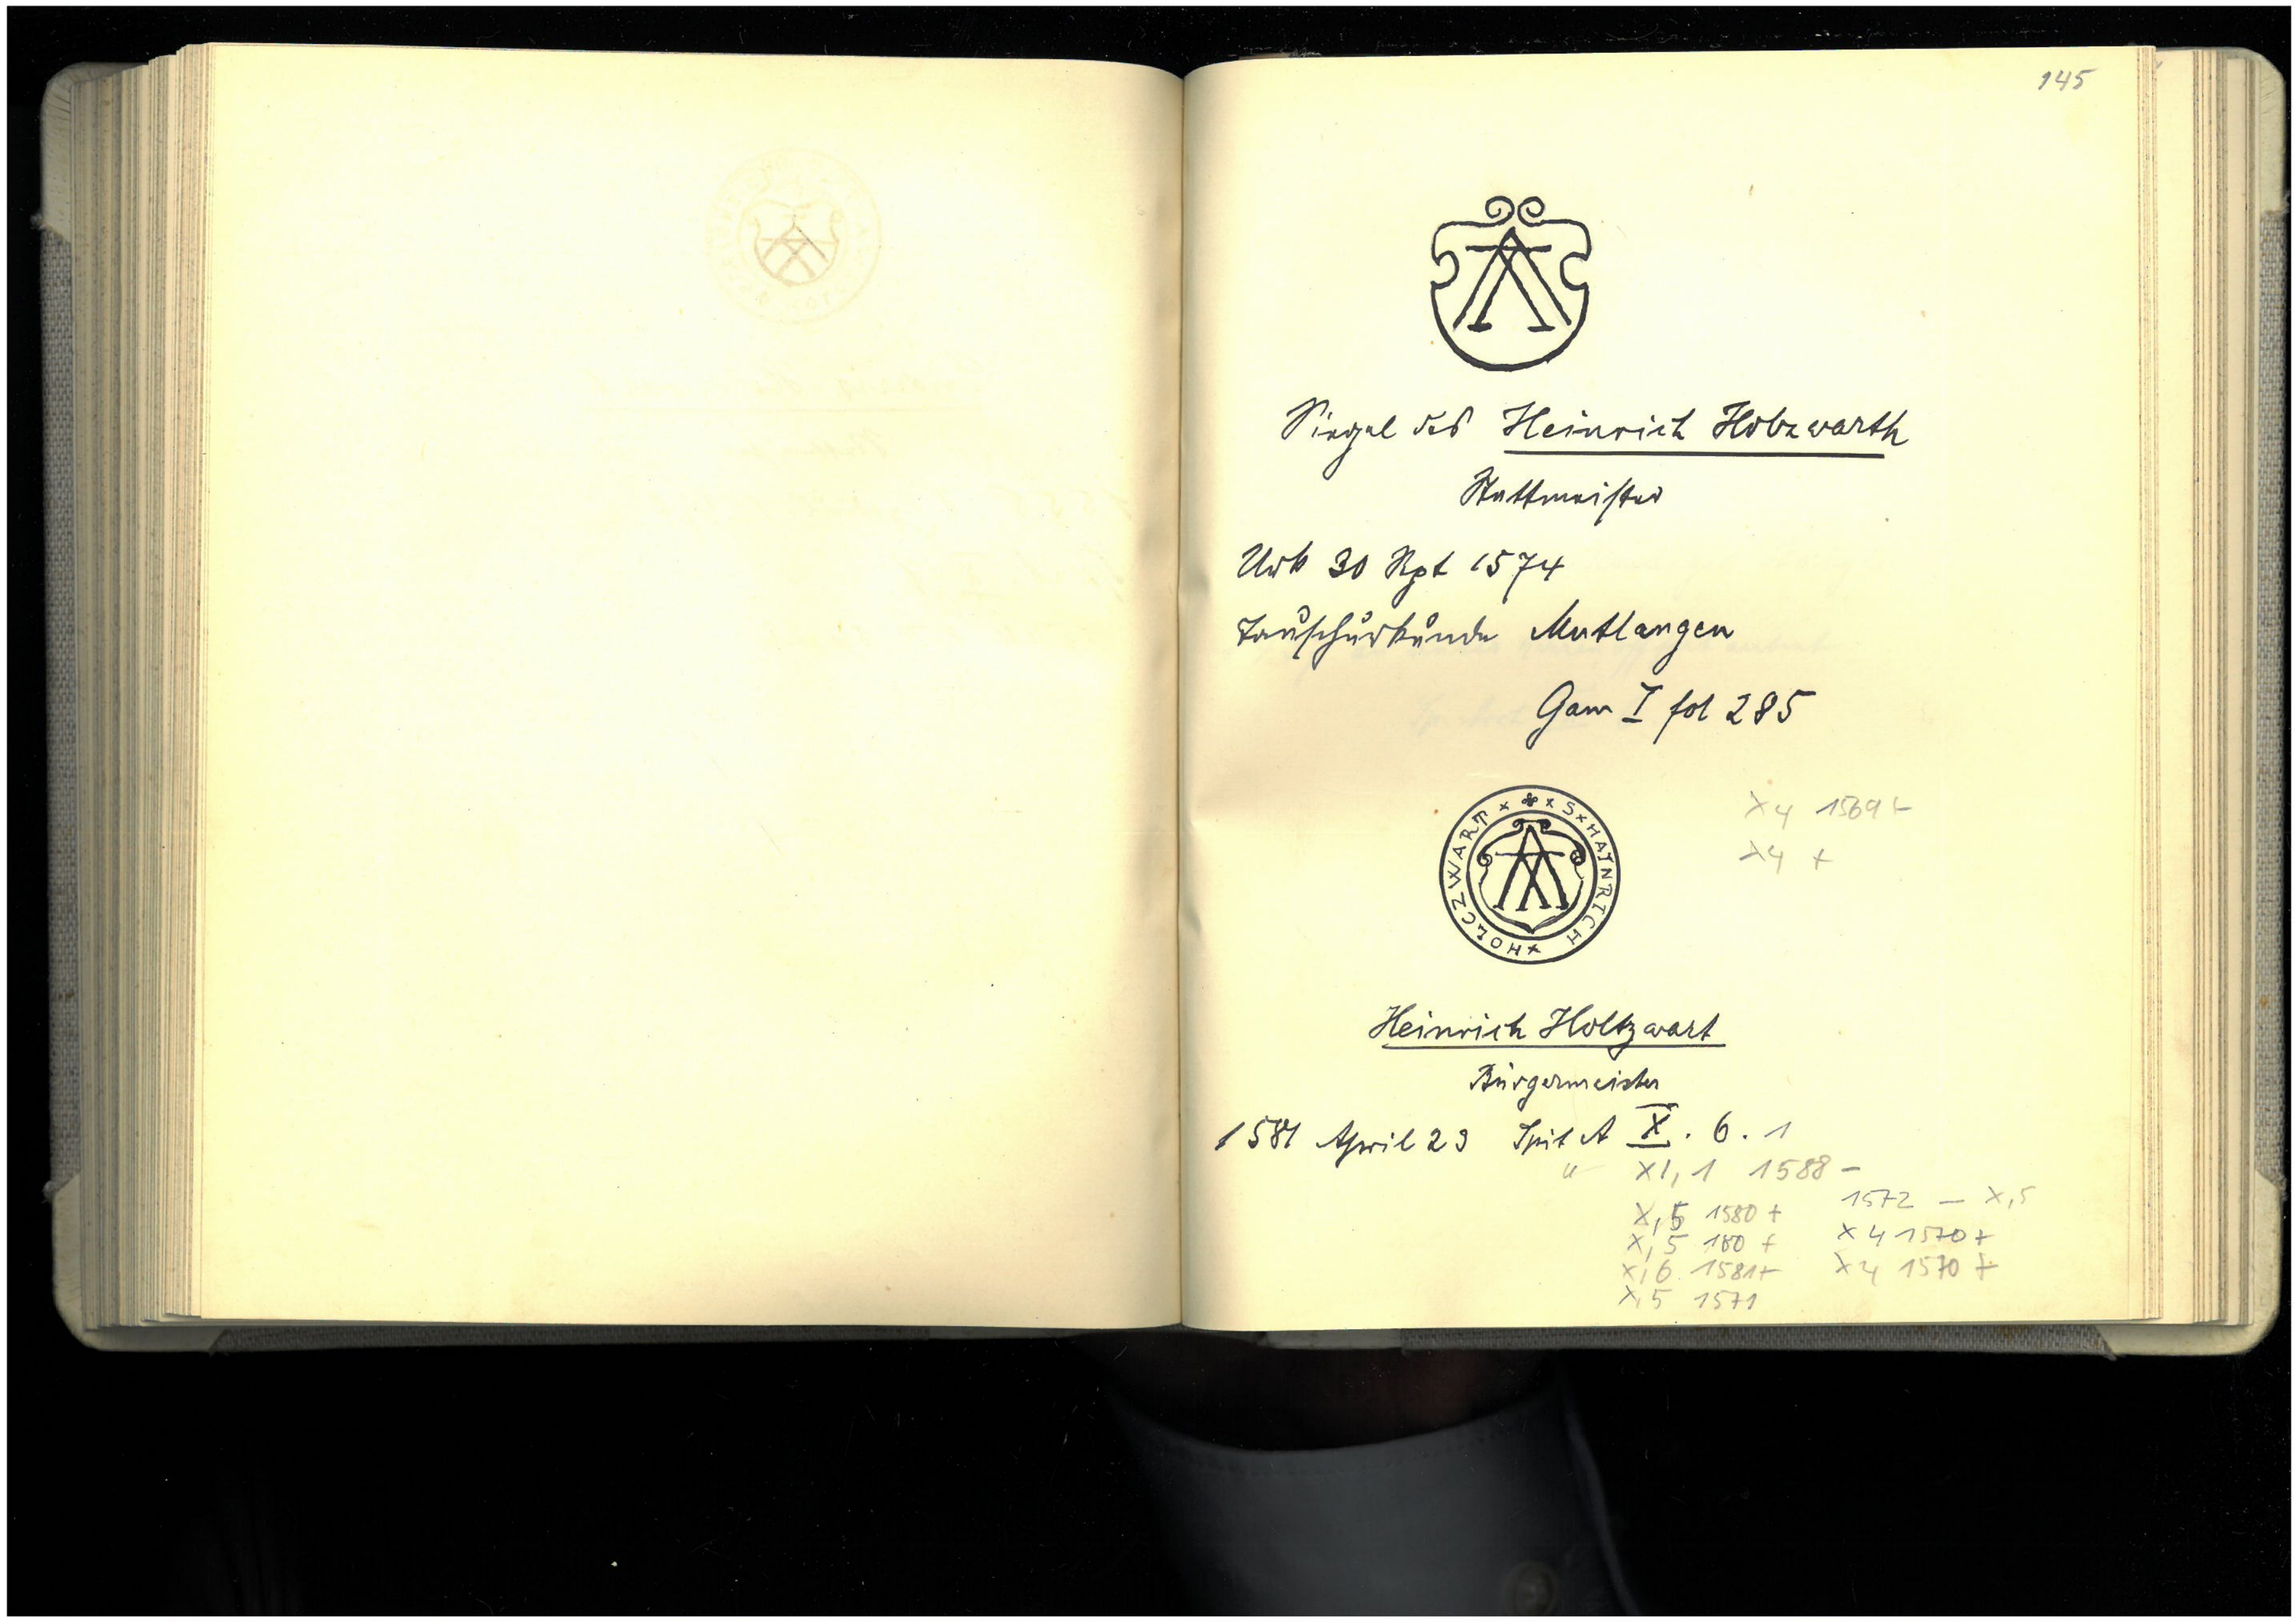 145
Siegel des Heinrich Holzwarth
Stattmeister
Urk 30 Spt 1574
Tauschurkunde Mutlangen
Gam I fol 285
S x HAINRICH x HOLCZWART x
x4 1569 +
x4 +
Heinrich Holtzwart
Bürgermeister
1581 April 23 Spit A X. 6. 1
" XI, 1 1588 –
X, 5 1580 +
1572 – X, 5
X, 5 180 +
X 4 1570 +
X, 6 1581 +
X 4 1570 +
X, 5 1571